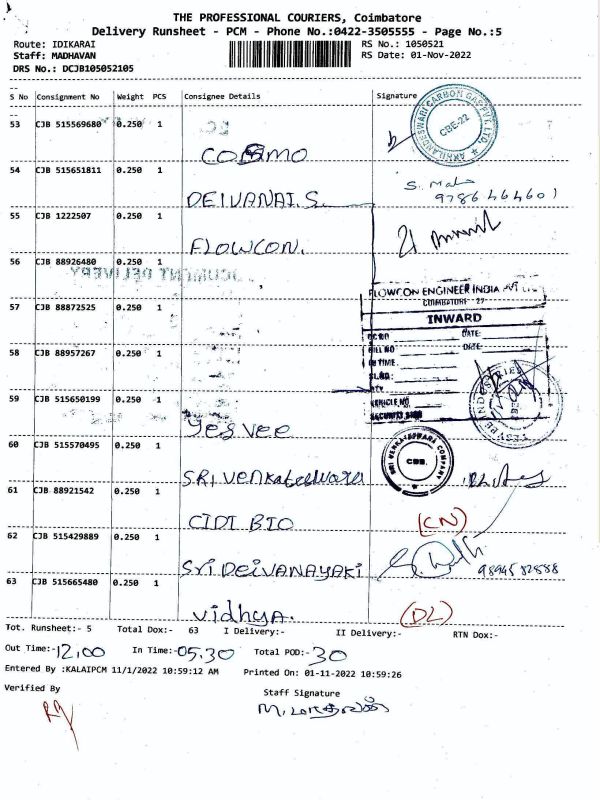 THE PROFESSIONAL COURIERS, Coimbatore
Delivery Runsheet - PCM - Phone No.:0422-3505555 - Page No.:5
Route: IDIKARAI RS No.: 1050521
Staff: MADHAVAN RS Date: 01-Nov-2022
DRS No.: DCJB105052105
S No Consignment No Weight PCS Consignee Details Signature
53 CJB 515569680 0.250 1
AKHILANDESWARI CARBON GAS PVT. LTD. CBE-22
COSMO
54 CJB 515651811 0.250 1
DEIVANAI.S. 9786464601
55 CJB 1222507 0.250 1
FLOWCON.
56 CJB 88926480 0.250 1
DOCUMENT DELIVERY
FLOWCON ENGINEER INDIA PVT LTD
COIMBATORE - 22
57 CJB 88872525 0.250 1
INWARD
DC NO DATE:
58 CJB 88957267 0.250 1
BILL NO DATE:
IN TIME.
SL.NO.
QTY.
59 CJB 515650199 0.250 1
VEHICLE NO.
SECURITY SIGN
yesvee
60 CJB 515570495 0.250 1
SRI VENKATESWARA COMPANY CBE.
S.R.I Venkateshwara
61 CJB 88921542 0.250 1
CIDI BIO (CN)
62 CJB 515429889 0.250 1
Sri.Deivanayaki 9894582888
63 CJB 515665480 0.250 1
Vidhya. (DL)
Tot. Runsheet:- 5 Total Dox:- 63 I Delivery:- II Delivery:- RTN Dox:-
Out Time:- 12.00 In Time:- 05.30 Total POD:- 30
Entered By :KALAIPCM 11/1/2022 10:59:12 AM Printed On: 01-11-2022 10:59:26
Verified By Staff Signature
M. மாதவன்